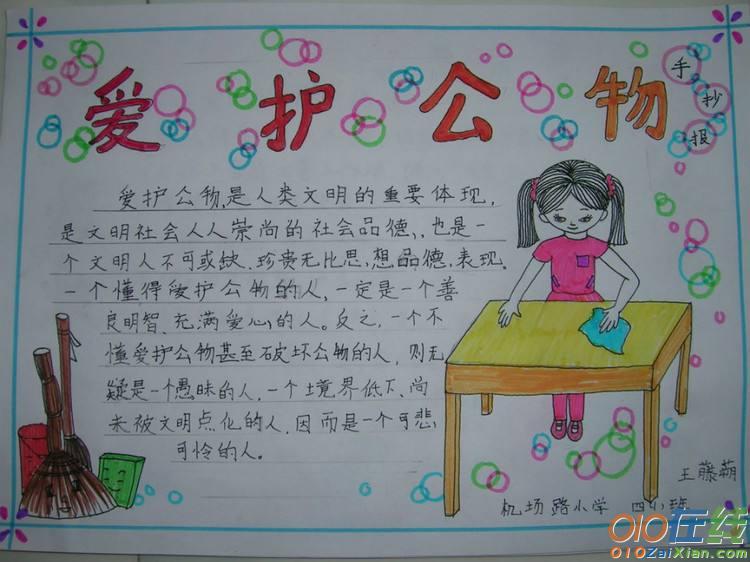 爱护公物
手抄报
爱护公物,是人类文明的重要体现,
是文明社会人人崇尚的社会品德,也是一
个文明人不可或缺.珍贵无比思想品德.表现.
一个懂得爱护公物的人,一定是一个善
良明智、充满爱心的人。反之,一个不
懂爱护公物甚至破坏公物的人,则无
疑是一个愚昧的人,一个境界低下、尚
未被文明点化的人,因而是一个可悲
可怜的人。
王藤萌
机场路小学 四(1)班
010在线
010ZaiXian.com